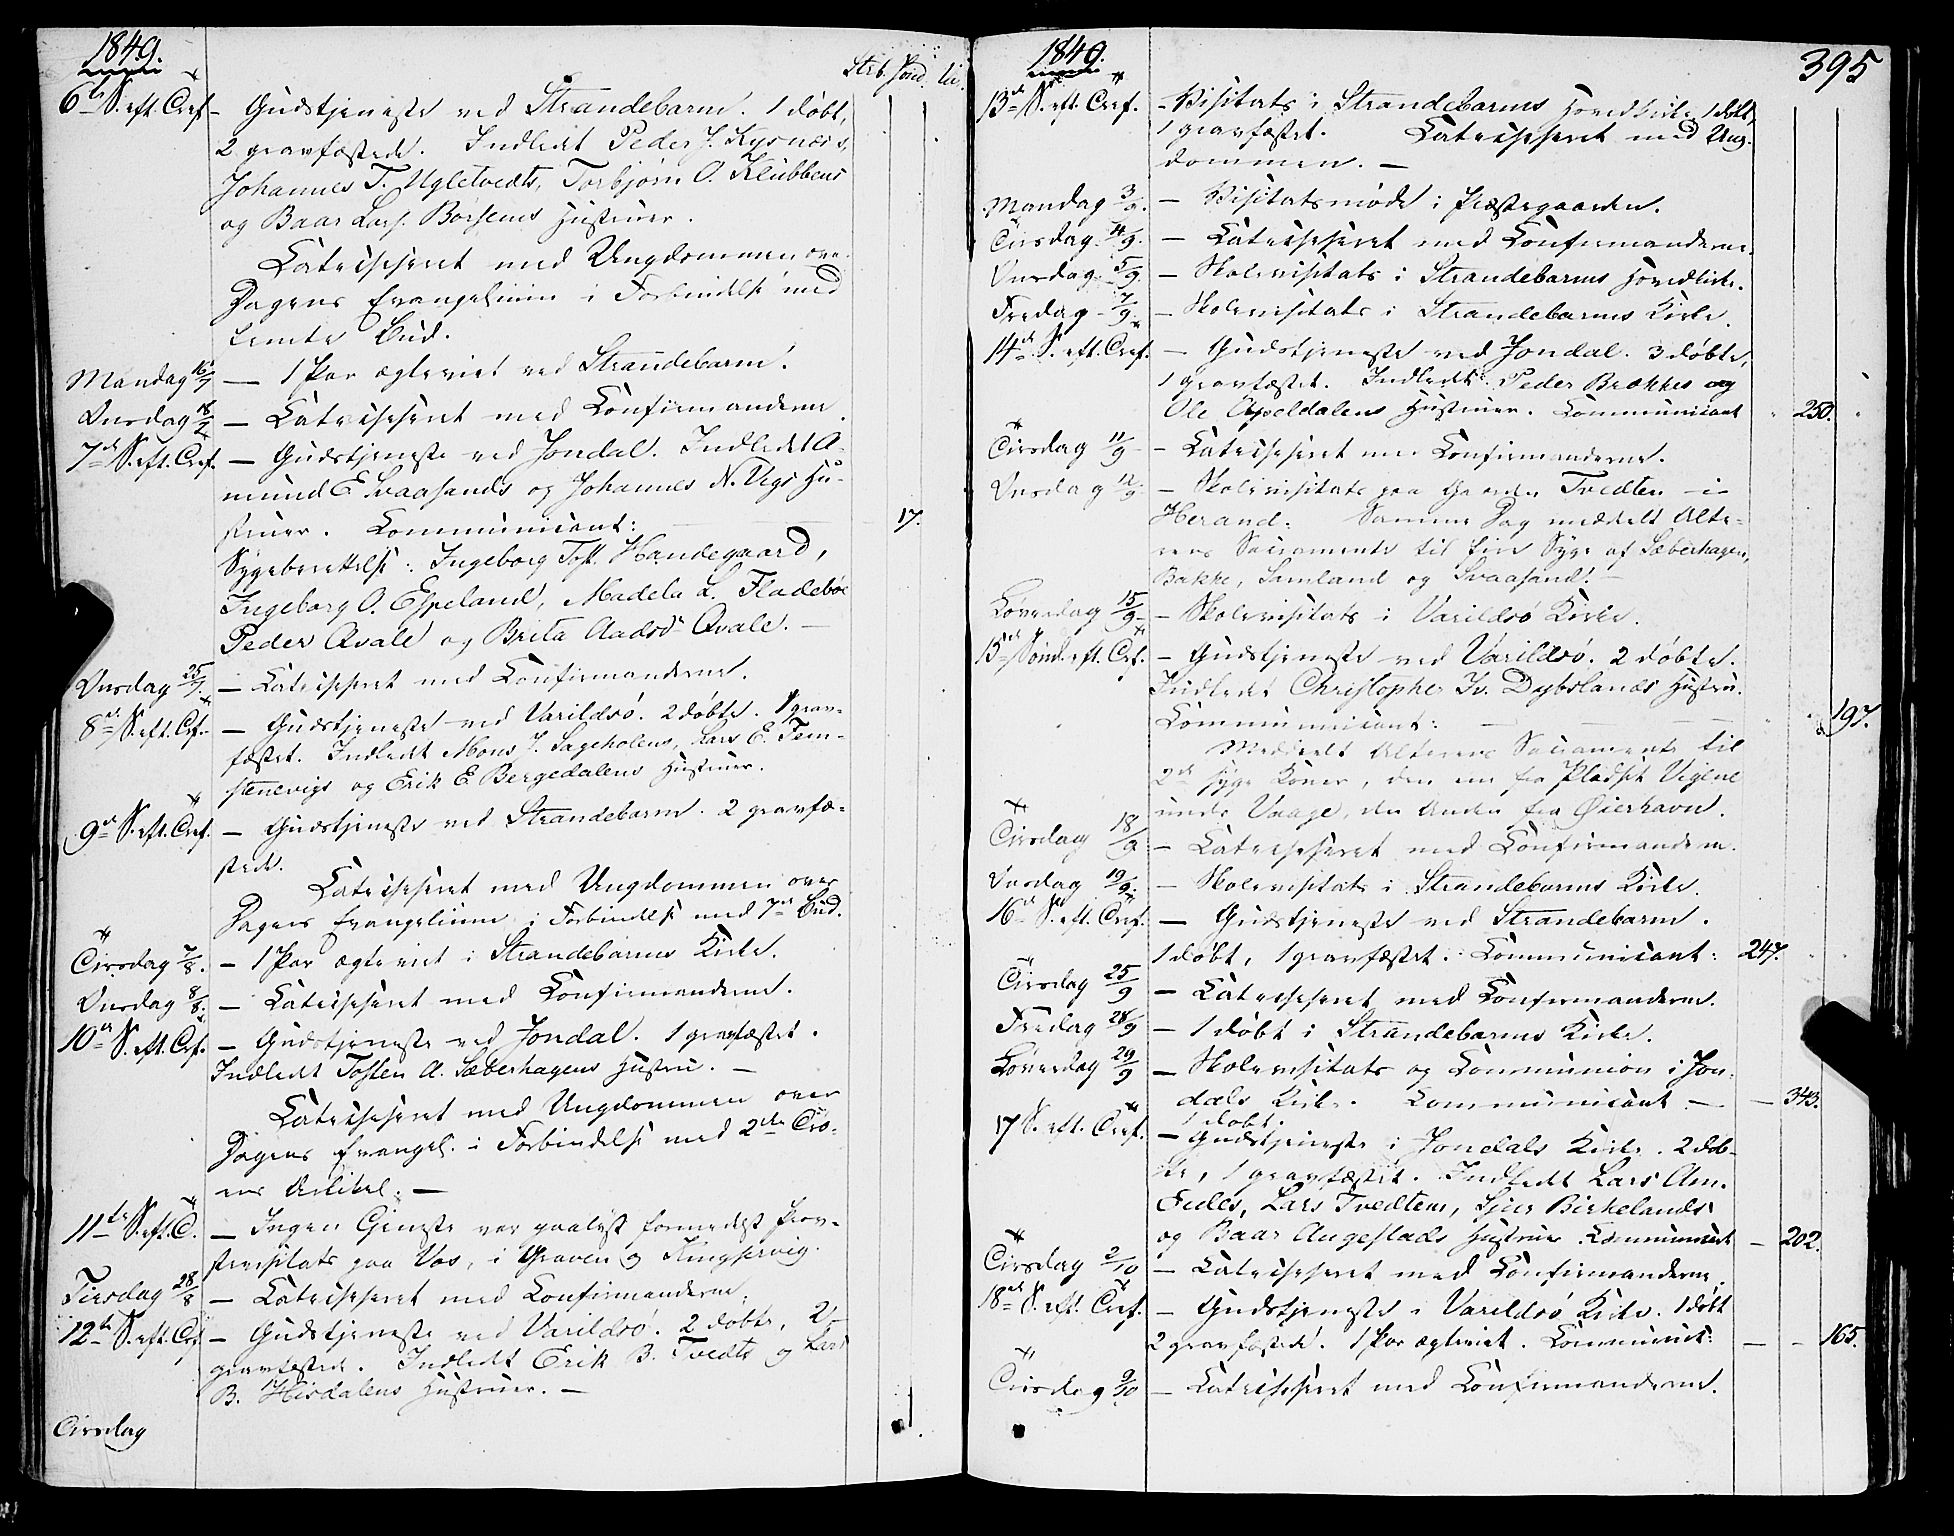 1849.
Strb. Jond. Va.
6te S. eft. Tref. – Gudstjeneste ved Strandebarm. 1 døbt,
2 gravfæstede. Indledt Peder J. Kysnæs's,
Johannes T. Ugletvedts, Torbjørn O. Klubbens
og Baar Lars. Børsems Hustruer.
Catechiseret med Ungdommen over
Dagens Evangelium i Forbindelse med
Bud.
Mandag 16/7 – 1 Par ægteviet ved Strandebarm.
Onsdag 18/7 – Catechiseret med Confirmanderne.
7de S. eft. Tref. – Gudstjeneste ved Jondal. Indledt A-
mund E Svaasands og Johannes N. Vigs Hu-
struer. Communicant: 17.
Sygeberettelse: Ingeborg Tost. Handegaard,
Ingeborg O. Espeland, Madela L. Fladebøe
Peder Qvale og Brita Aadsdr Qvale. –
Onsdag 25/7 – Catechiseret med Confirmanderne.
8de S. eft. Tref. – Gudstjeneste ved Varildsø. 2 døbte. 1 grav-
fæstet. Indledt Mons J. Sageholens, Lars E. Tem-
stenevigs og Erik E Bergedalens Hustruer.
9de S. eft. Tref. – Gudstjeneste ved Strandebarm. 2 gravfæ-
stede.
Catechiseret med Ungdommen over
Dagens Evangelium i Forbindelse med 7de Bud.
Tirsdag 7/8. – 1 Par ægteviet i Strandebarms Kirke.
Onsdag 8/8. – Catechiseret med Confirmanderne.
10de S. eft. Tref. – Gudstjeneste ved Jondal. 1 gravfæstet.
Indledt Tosten A. Sæberhagens Hustru. –
Catechiseret med Ungdommen over
Dagens Evangel. i Forbindelse med 2den Tro-
ens Artikel. –
11te S. eft. T. – Ingen Tjeneste var paalyst formedelst Prov-
stevisitats paa Vos, i Graven og Kingservig.
Tirsdag 28/8 – Catechiseret med Confirmanderne.
12te S. eft. Tref – Gudstjeneste ved Varildsø. 2 døbte, 2
gravfæstede. Indledt Erik B. Tvedts og Lars
B. Hisdalens Hustruer. –
Tirsdag
1849.
395
13de S. eft. Tref. – Visitats i Strandebarms Hovedkirke, 1 døbt,
1 gravfæstet. Catechiseret med Ung-
dommen. –
Mandag 3/9. – Visitatsmøde i Præstegaarden.
Tirsdag 4/9. – Catechiseret med Confirmanderne.
Onsdag 5/9 – Skolevisitats i Strandebarms Hovedkirke.
Fredag 7/9 – Skolevisitats i Strandebarms Kirke.
14de S. eft. Tref. – Gudstjeneste ved Jondal. 3 døbte,
1 gravfæstet. Indledt: Peder Brækkes og
Ole Espeldalens Hustruer. Communicant 250.
Tirsdag 11/9 – Catechiseret med Confirmanderne.
Onsdag 12/9 – Skolevisitats paa Gaarden Tvedten i
Herand. Samme Dag meddelt Alte-
rens Sacramente til fire Syge af Sæberhagen,
Bakke, Samland og Svaasand. –
Løverdag 15/9 – Skolevisitats i Varildsø Kirke.
15de Sønd. eft. Tref. – Gudstjeneste ved Varildsø. 2 døbte.
Indledt Christopher Iv. Dybslands Hustru.
Communicant: – – – 197.
Meddeelt Alterens Sacramente til
2de syge Koner, den ene fra Pladset Vigene
under Vaage, den Anden fra Øierhavn.
Tirsdag 18/9 – Catechiseret med Confirmanderne.
Onsdag 19/9. – Skolevisitats i Strandebarms Kirke.
16de S. eft. Tref. – Gudstjeneste ved Strandebarm.
1 døbt, 1 gravfæstet. Communicant: 247.
Tirsdag 25/9 – Catechiseret med Confirmanderne.
Fredag 28/9 – 1 døbt i Strandebarms Kirke.
Løverdag 29/9 – Skolevisitats og Communion i Jon-
dals Kirke. Communicant – – 343.
1 døbt.
17 S. eft. Tref. – Gudstjeneste i Jondals Kirke. 2 døb-
te, 1 gravfæstet. Indledt Lars Am.
Eides, Lars Tvedtens, Sjur Birkelands
og Baar Augestads Hustruer. Communicant – 202.
Tirsdag 2/10 – Catechiseret med Confirmanderne.
18de S. eft. Tref. – Gudstjeneste i Varildsø Kirke. 1 døbt
2 gravfæstede. 1 Par ægteviet. Communicant: – – 165.
Tirsdag 9/10 – Catechiseret med Confirmanderne.